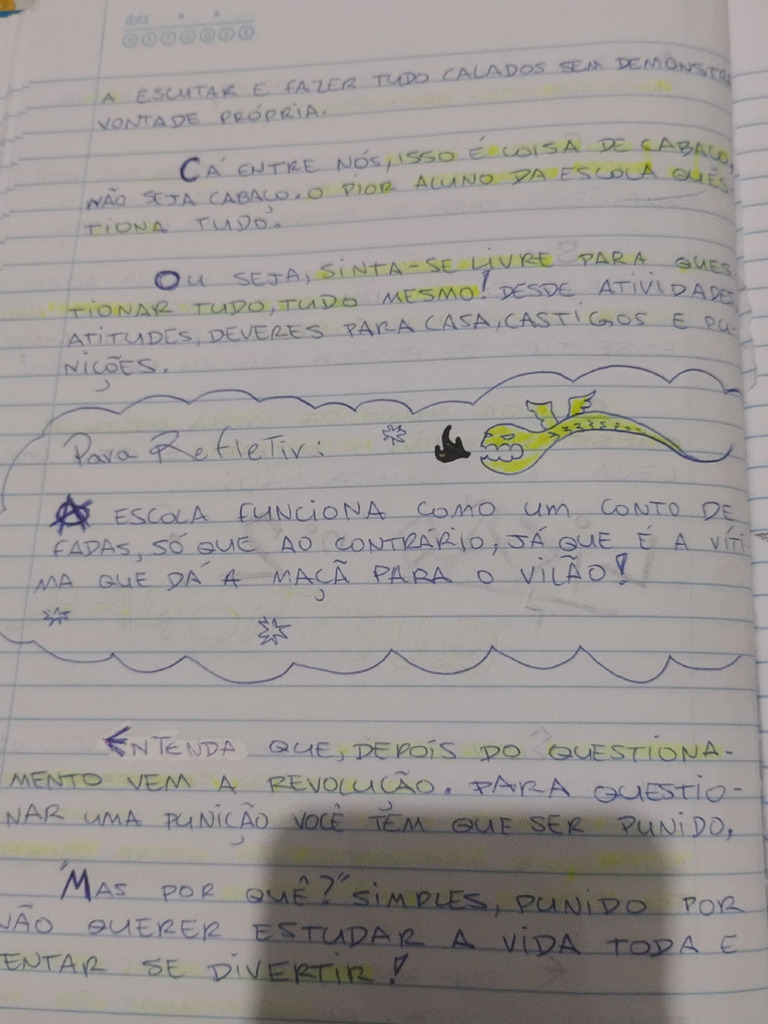 data
A ESCUTAR E FAZER TUDO CALADOS SEM DEMONSTR
VONTADE PRÓPRIA.
CÁ ENTRE NÓS, ISSO É COISA DE CABAÇO,
NÃO SEJA CABAÇO. O PIOR ALUNO DA ESCOLA QUES-
TIONA TUDO.
OU SEJA, SINTA-SE LIVRE PARA QUES
TIONAR TUDO, TUDO MESMO! DESDE ATIVIDADES
ATITUDES, DEVERES PARA CASA, CASTIGOS E PU-
NIÇÕES.
Para Refletir:
A ESCOLA FUNCIONA COMO UM CONTO DE
FADAS, SÓ QUE AO CONTRÁRIO, JÁ QUE É A VÍTI
MA QUE DÁ A MAÇÃ PARA O VILÃO!
ENTENDA QUE, DEPOIS DO QUESTIONA-
MENTO VEM A REVOLUÇÃO. PARA QUESTIO-
NAR UMA PUNIÇÃO VOCÊ TÊM QUE SER PUNIDO,
"MAS POR QUÊ?" SIMPLES, PUNIDO POR
NÃO QUERER ESTUDAR A VIDA TODA E
ENTAR SE DIVERTIR!